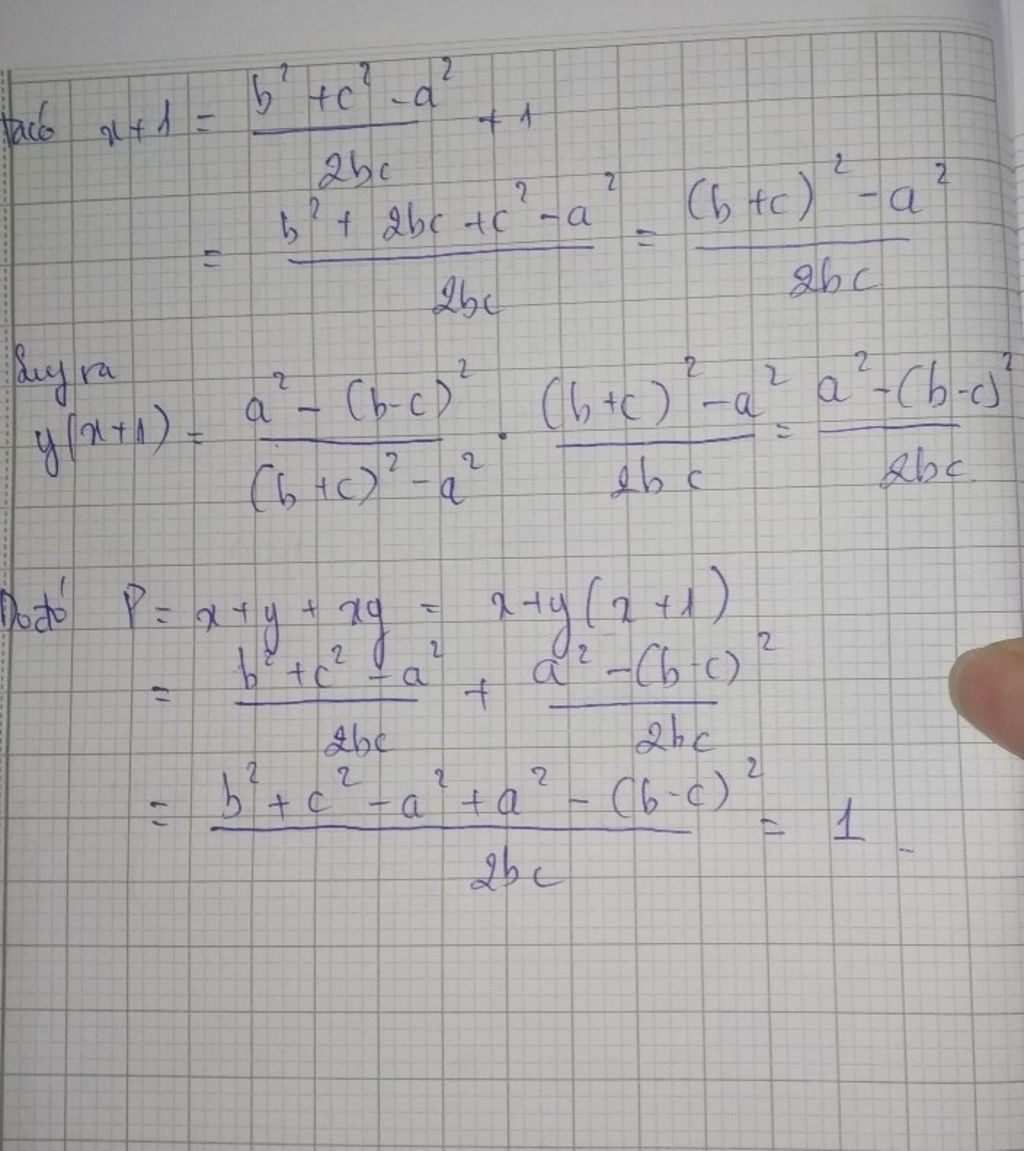 Ta có x+1 = \frac{b^2+c^2-a^2}{2bc} + 1
= \frac{b^2+2bc+c^2-a^2}{2bc} = \frac{(b+c)^2-a^2}{2bc}
Suy ra
y(x+1) = \frac{a^2-(b-c)^2}{(b+c)^2-a^2} . \frac{(b+c)^2-a^2}{2bc} = \frac{a^2-(b-c)^2}{2bc}
Do đó P = x+y+xy = x+y(x+1)
= \frac{b^2+c^2-a^2}{2bc} + \frac{a^2-(b-c)^2}{2bc}
= \frac{b^2+c^2-a^2+a^2-(b-c)^2}{2bc} = 1